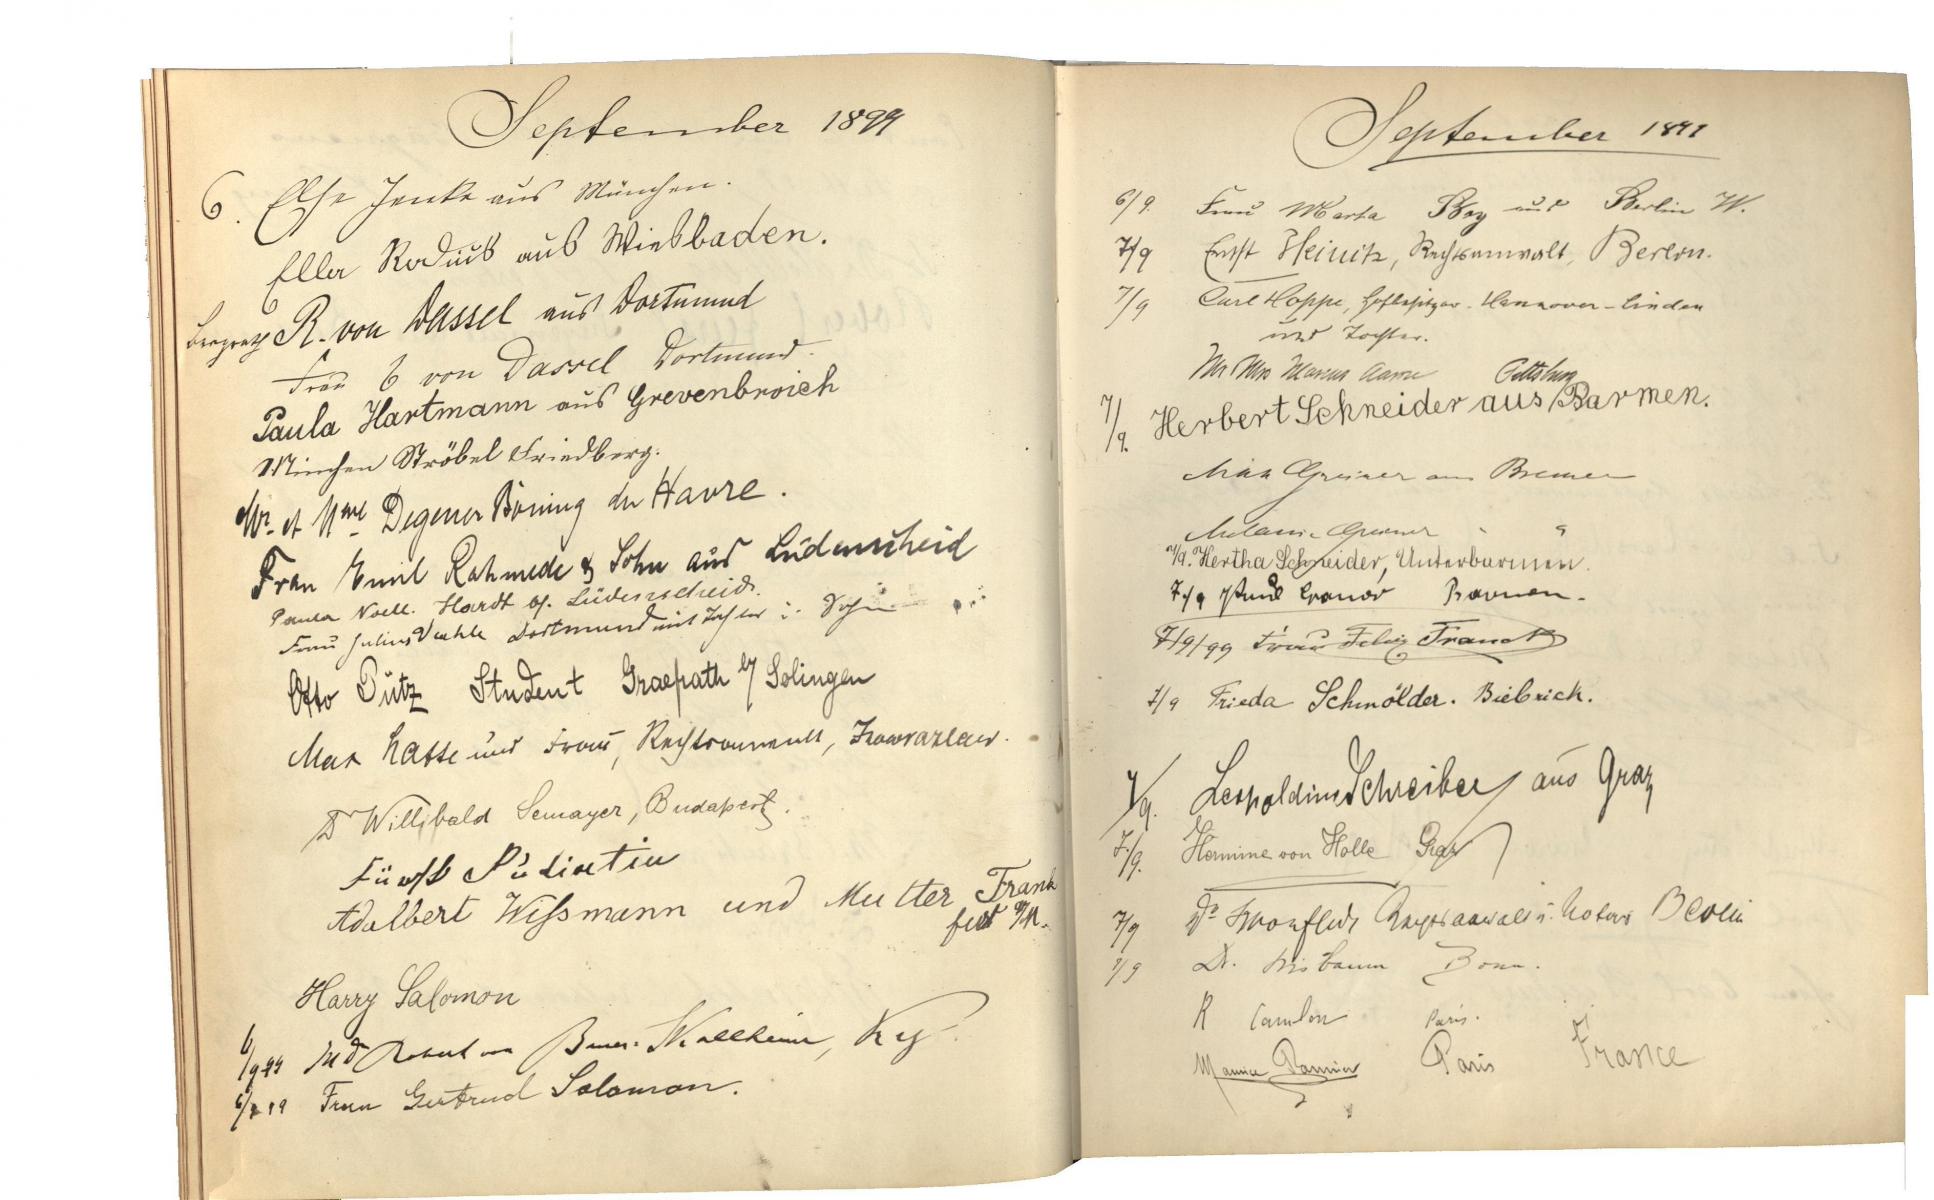 September 1899
6. Else Jencke aus München.
Ella Radius aus Wiesbaden.
Bergrath R. von Dassel aus Dortmund
Frau E von Dassel Dortmund.
Paula Hartmann aus Grevenbroich
Minchen Ströbel Friedberg.
Mr. et Mme Degener Böning du Havre.
Frau Emil Rahmede & Sohn aus Lüdenscheid
Paula Noell. Hardt b/. Lüdenscheid.
Frau Julius Dortmund mit Tochter u. Sohn
Otto Pütz Student Graefrath b/ Solingen
Max Latte und Frau, Rechtsanwalt, Inowrazlaw.
Dr Willibald Semayer, Budapest.
Adalbert Wissmann und Mutter Frank
furt a/M.
Harry Salomon
6/9 99
Frau Gertrud Salomon.
September 1899
6/9. Frau Marta Boy aus Berlin W.
7/9 Ernst Heinitz, Rechtsanwalt, Berlin.
7/9 Carl Hoppe, Hannover-Linden
und Tochter.
Mr Mrs Marcus Aaron Pittsburg
7/9. Herbert Schneider aus Barmen.
Max Greiner aus Bremen
Melanie Greiner " "
7/9. Hertha Schneider, Unterbarmen.
7/9 Barmen.
7/9/99 Frau Felix Franck
7/9 Frieda Schmölder. Biebrich.
7/9. Leopoldine Schreiber aus Graz
7/9. Hermine von Holle Graz
7/9 Dr Rechtsanwalt u. Notar Berlin
7/9 Dr. Bonn.
R Paris.
Maurice Paris France